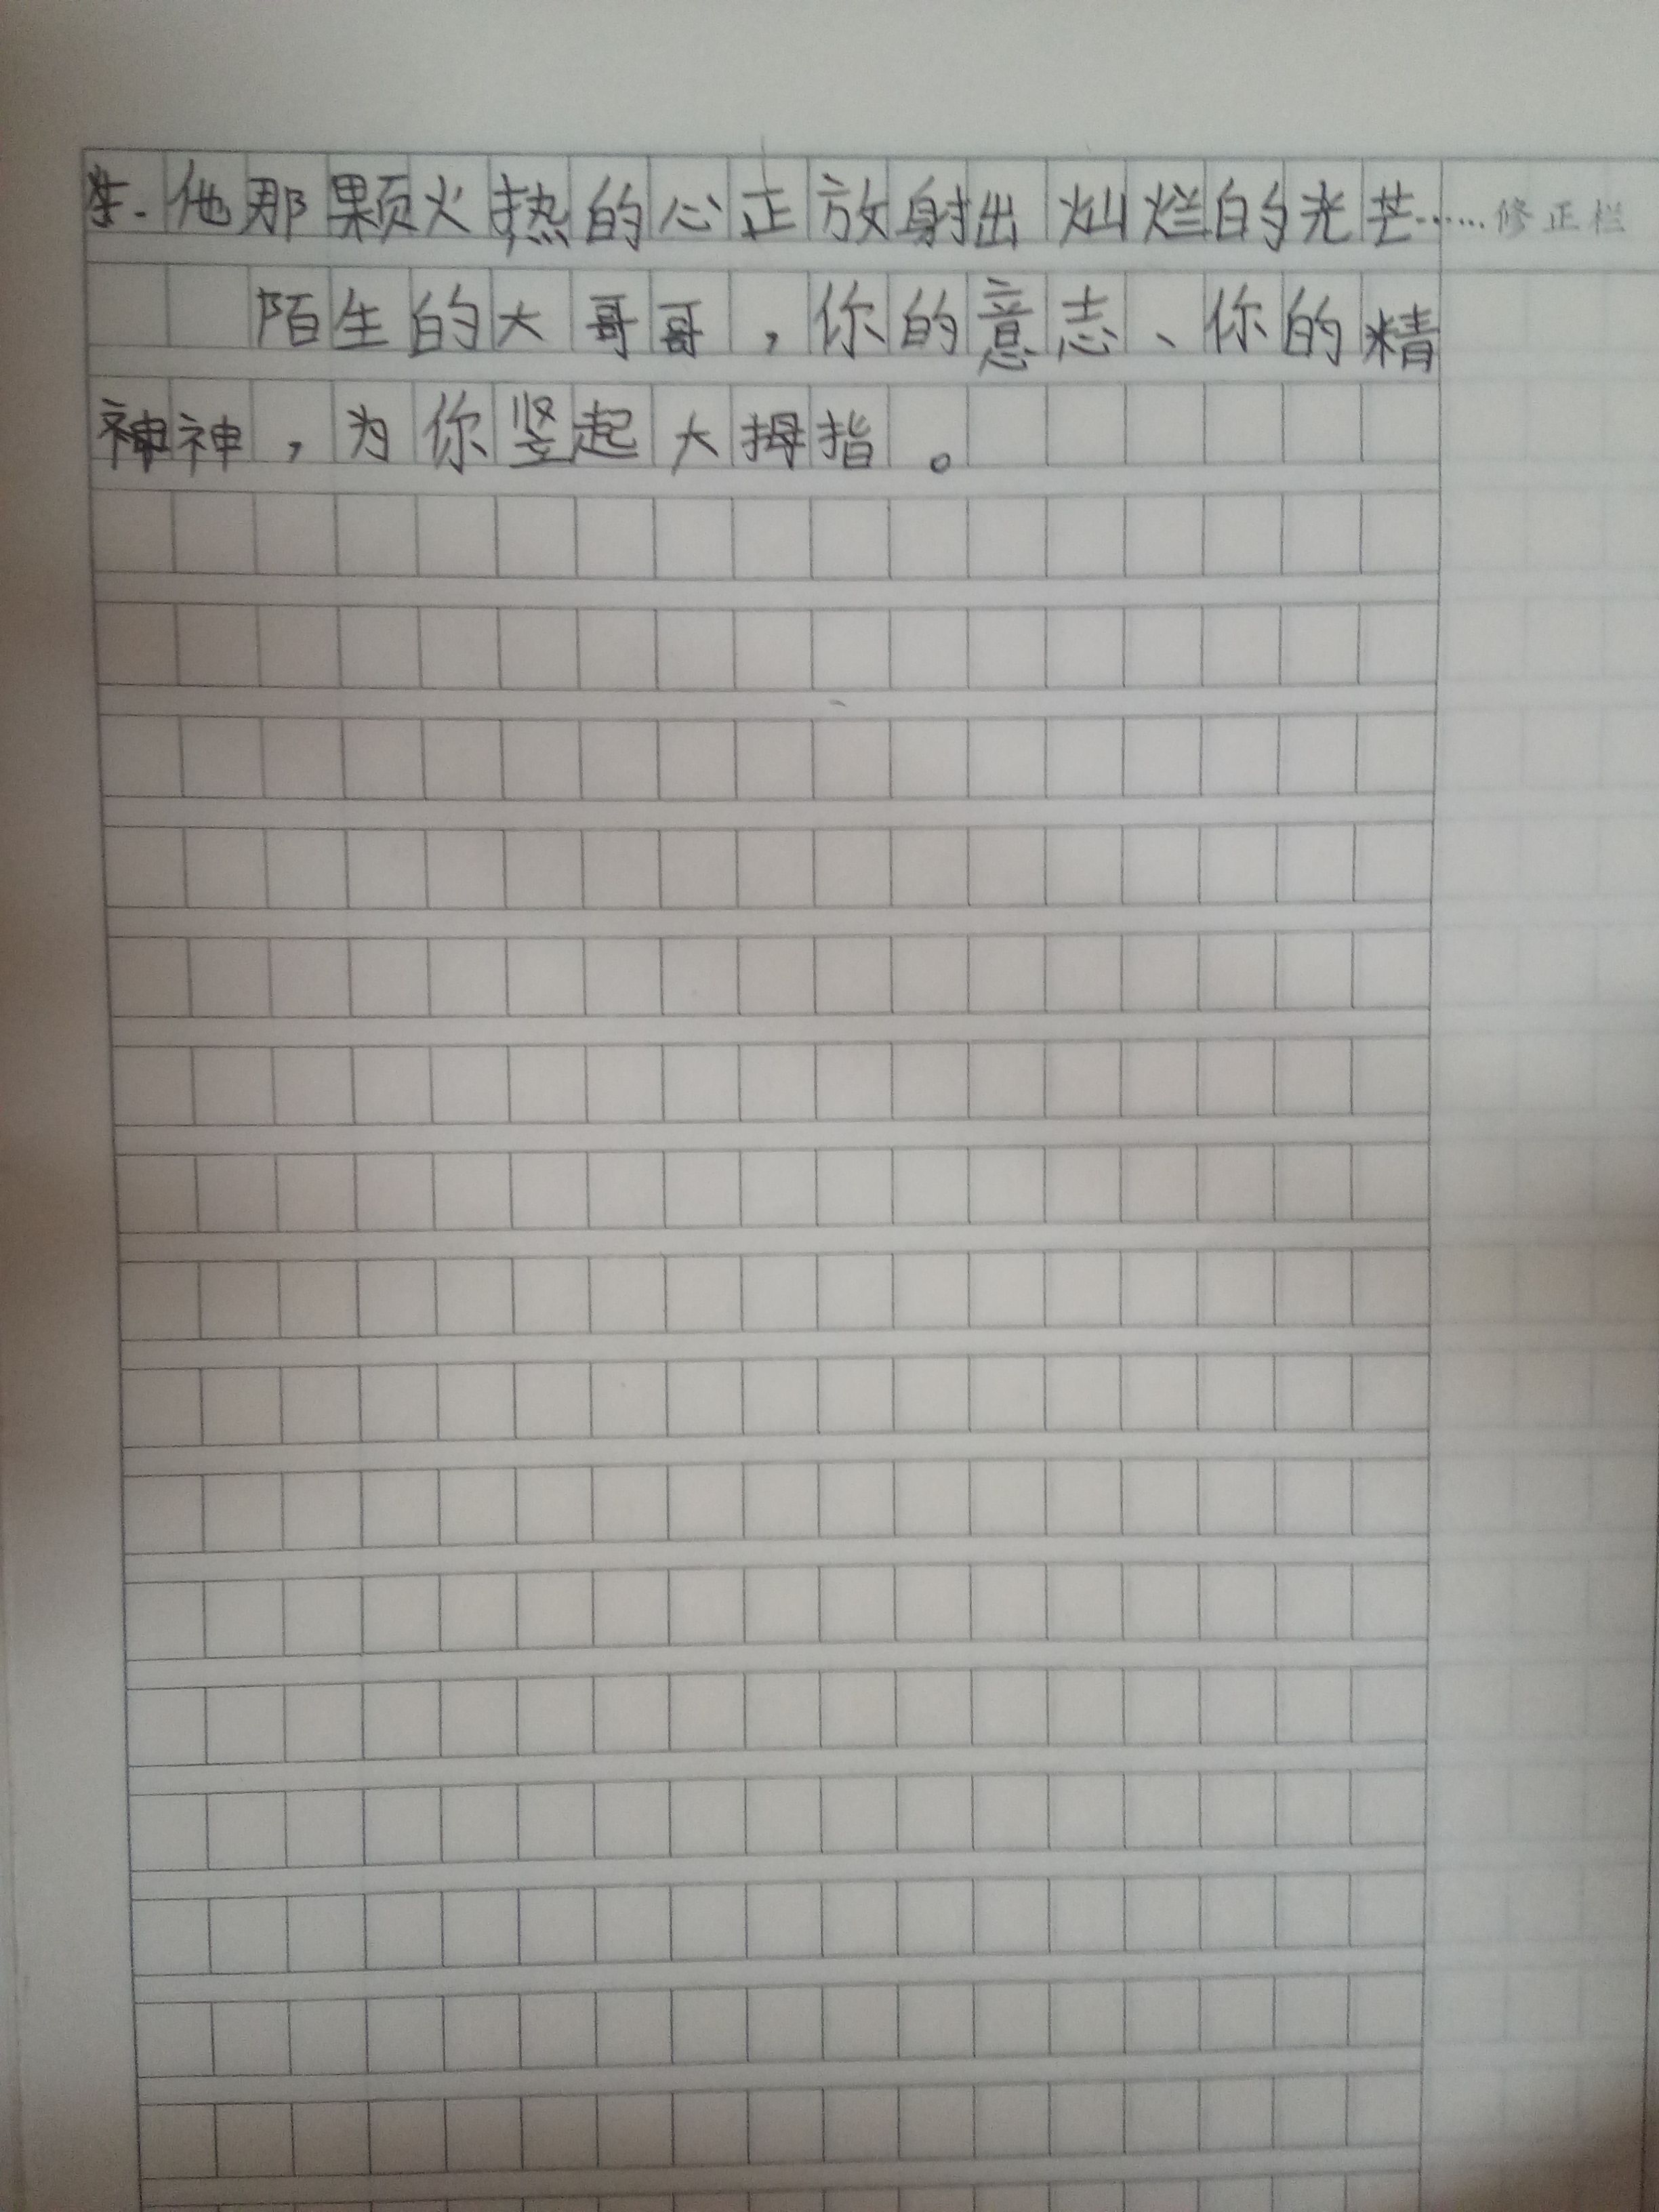 生.他那颗火热的心正放射出灿烂的光芒……修正栏
陌生的大哥哥,你的意志、你的精
神神,为你竖起大拇指。